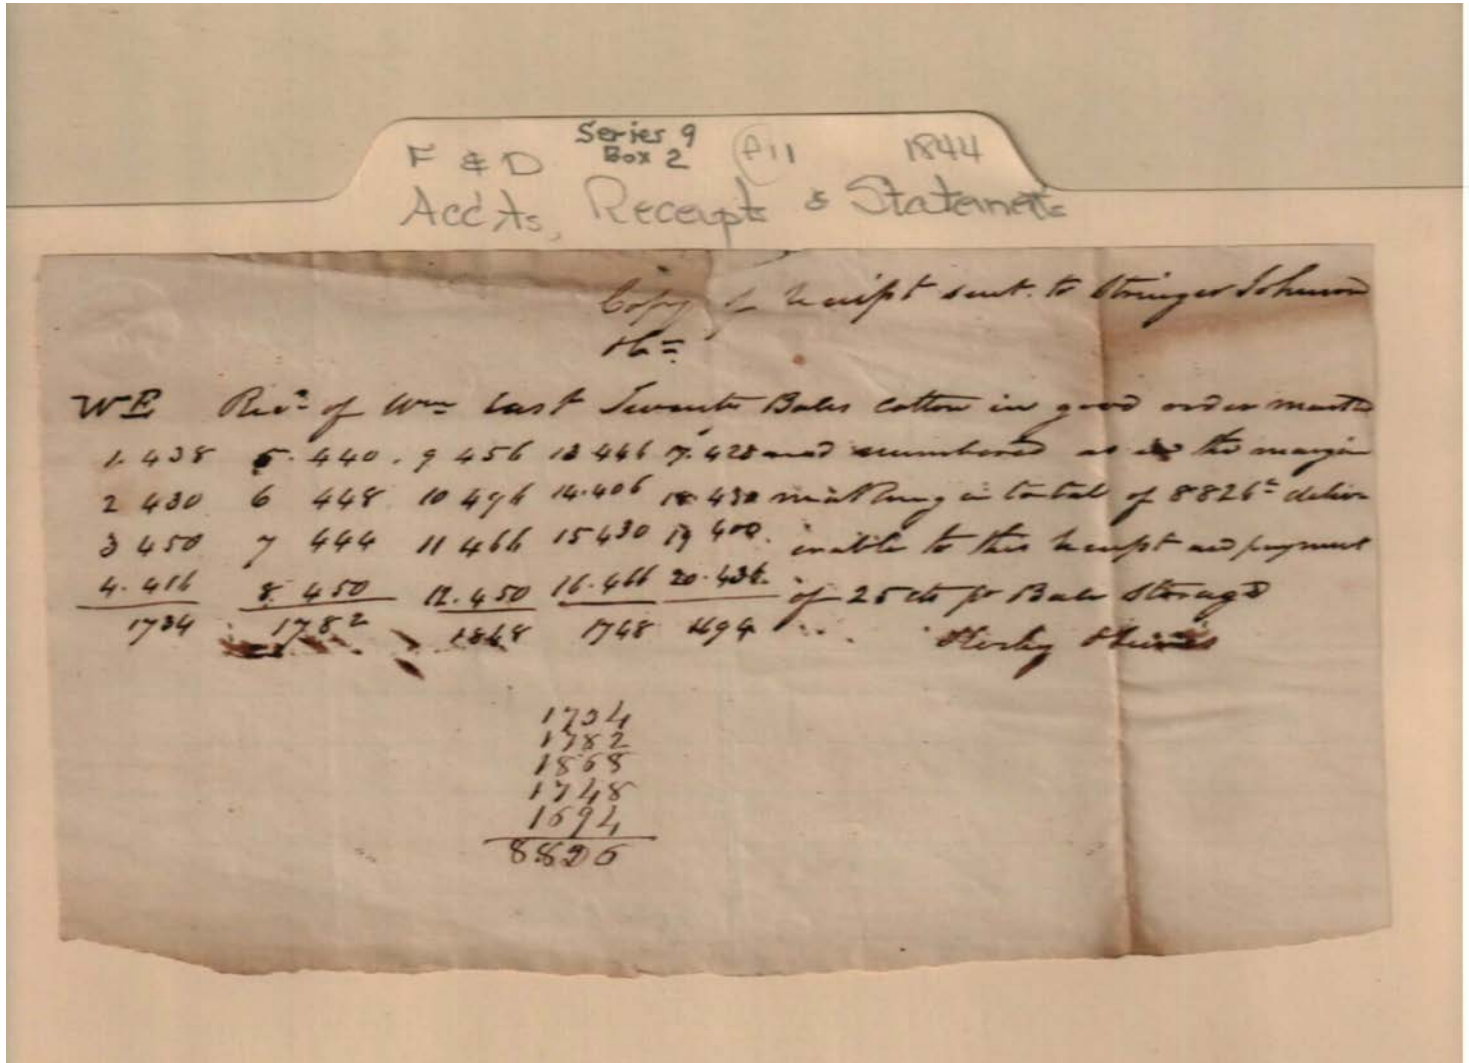 Series 9
F & D Box 2 P11 1844
Acc'ts, Receipts & Statements
Copy of Receipt sent to Stringer Johnson
WE Recd of Wm East Twenty Bales Cotton in good order marked
1. 438 5. 440. 9 456 13 446 17. 428 and numbered as in the margin
2 430 6 448 10 496 14. 406 18. 430 making in total of 8826 deliv
3 450 7 444 11 466 15 430 19 400. erable to this receipt and payment
4. 416 8. 450 12. 450 16. 466 20. 436. of 25 cts pr Bale Storage
1734 1782 1868 1748 1694
1734
1782
1868
1748
1694
8826